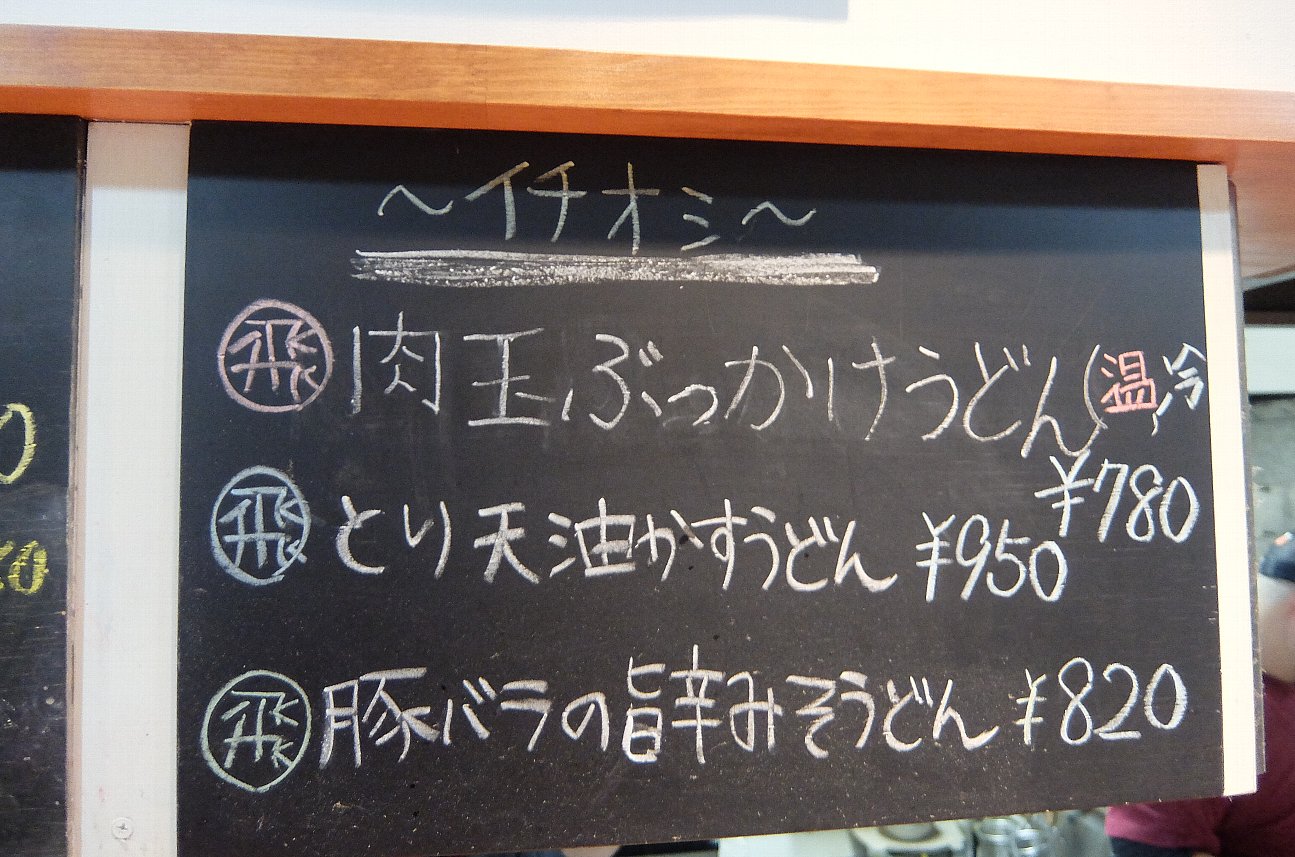 ～イチオシ～
飛 肉玉ぶっかけうどん(温,冷
¥780
飛 とり天油かすうどん ¥950
飛 豚バラの旨辛みそうどん ¥820